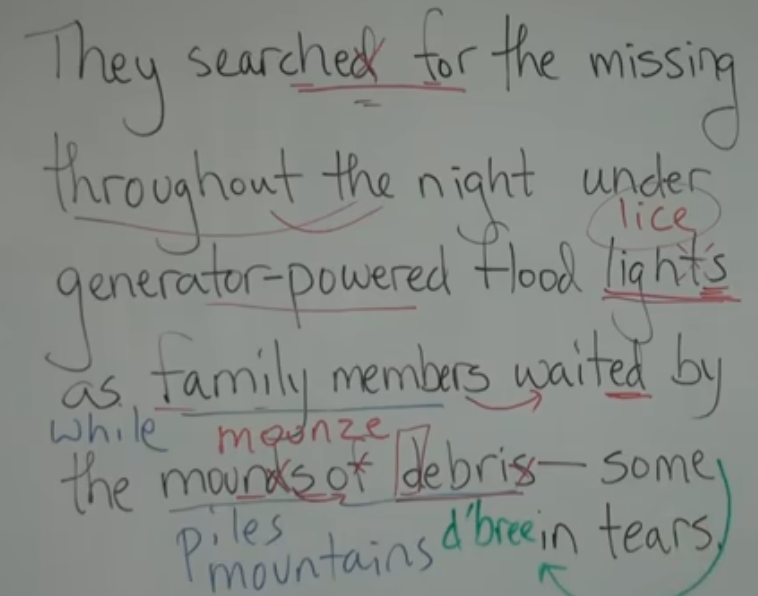 They searched for the missing
throughout the night under
lice
generator-powered flood lights
as family members waited by
while mounze
the mounds of debris— some
piles d'bree in tears.
mountains